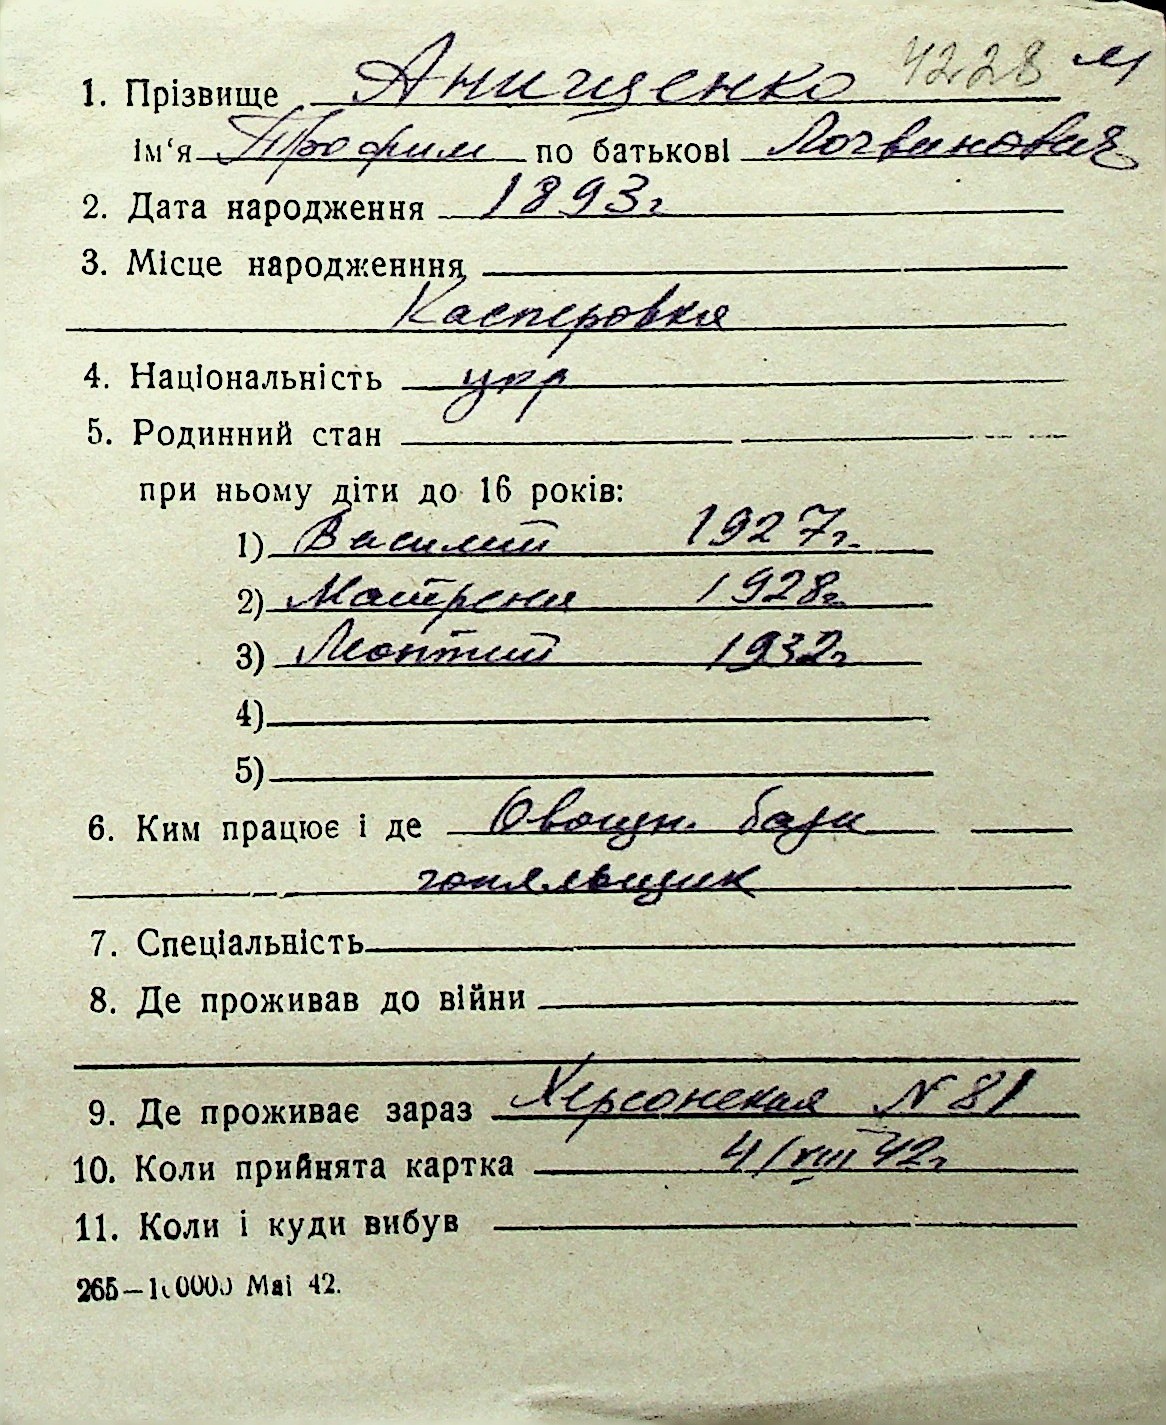 4228 м
1. Прізвище Анищенко
ім'я Трофим по батькові Логвинович
2. Дата народження 1893г
3. Місце народженння
Касперовка
4. Національність укр
5. Родинний стан
при ньому діти до 16 років:
1) Василий 1927г.
2) Матрена 1928г
3) Леонтий 1932г
4)
5)
6. Ким працює і де Овощн. базы
7. Спеціальність
8. Де проживав до війни
9. Де проживає зараз Херсонская N 81
10. Коли прийнята картка 4/VIII 42г
11. Коли і куди вибув
265—100000 Маі 42.